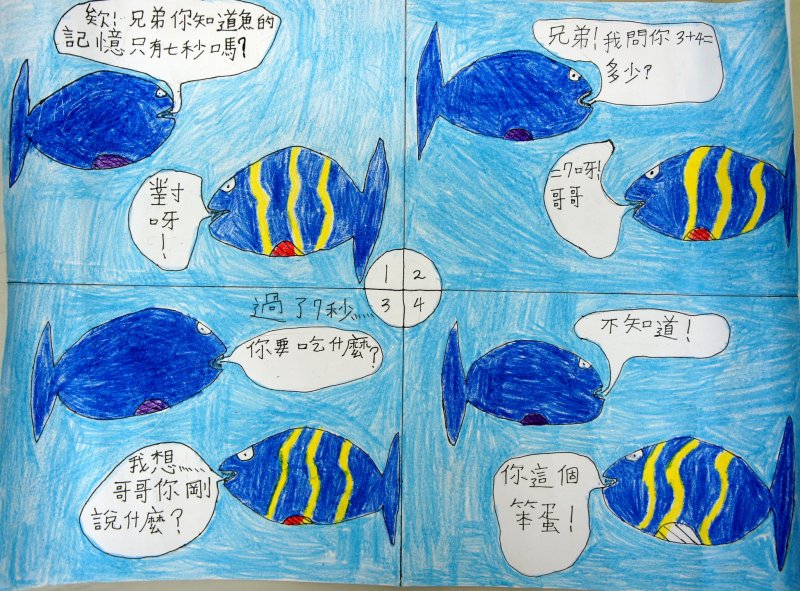 欸!兄弟你知道魚的
記憶只有七秒嗎?
對
呀!
兄弟!我問你3+4=
多少?
=7呀!
哥哥
1
2
3
4
過了7秒……
你要吃什麼?
我想……
哥哥你剛
說什麼?
不知道!
你這個
笨蛋!